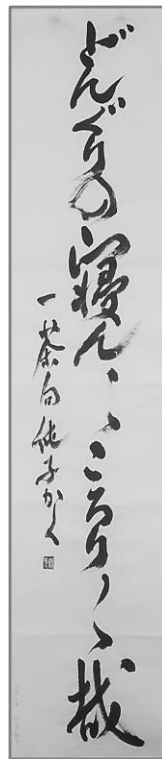 どんぐりの寝んゝゝころり〳〵哉
一茶句 純子かく